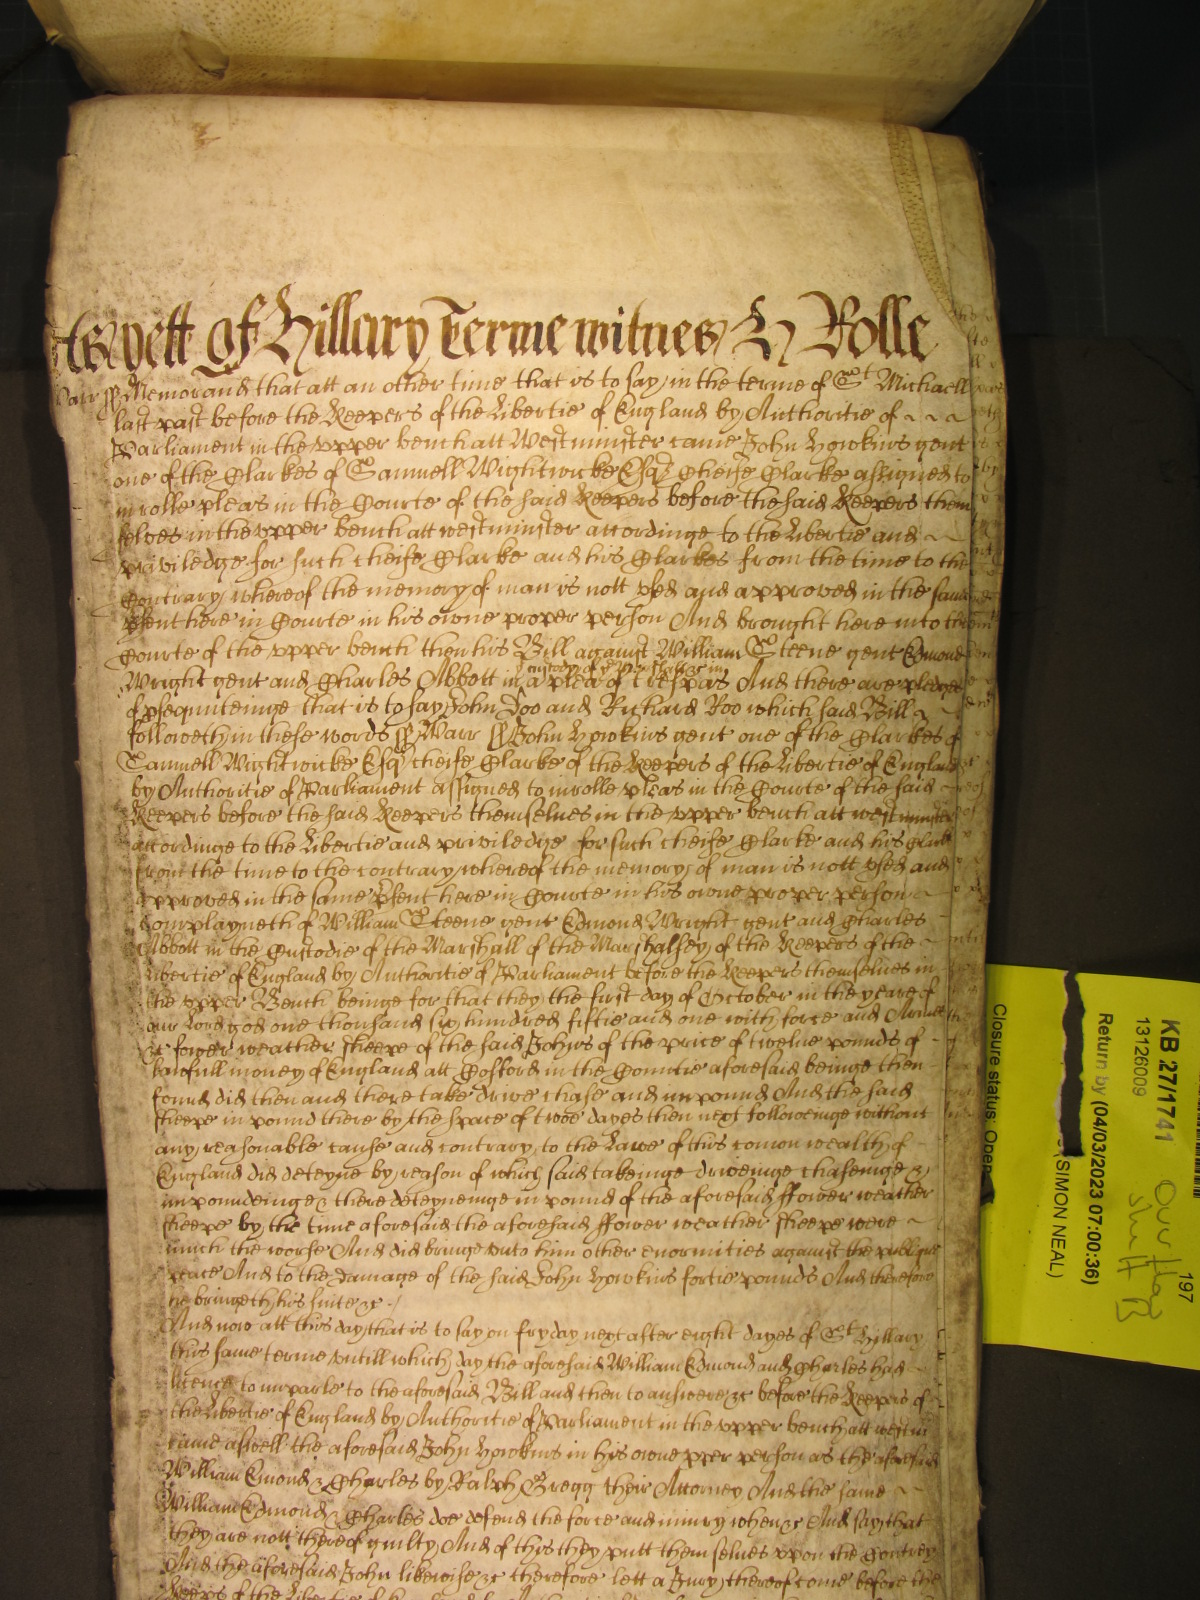 as yett of Hillary Terme witnes H Rolle
Warr ss Memorand that att an other time that is to say in the terme of St Michaell
last past before the Keepers of the Libertie of England by Authoritie of
Parliament in the vpper bench att Westminster came John Hopkins gent
one of the Clarkes of Samuell Wightwicke Esqr cheife Clarke assigned to
inrolle pleas in the Courte of the said Keepers before the said Keepers them
selves in the vpper bench att westminster accordinge to the Libertie and
priviledge for such cheife Clarke and his Clarkes from the time to the
Contrary whereof the memory of man is nott vsed and approved in the same
psent here in Courte in his owne proper person And brought here into the
Courte of the vpper bench then his Bill against William Steene gent Edmond
custody of ye Marshall &c in
Wright gent and Charles Abbott in a plea of trespas And there are pledges
of psequuteinge that is to say John Doo and Richard Roo which said Bill
followeth in these words ss Warr ss John Hopkins gent one of the Clarkes of
Samuell Wightwicke Esqr cheife Clarke of the Keepers of the Libertie of England
by Authoritie of Parliament assigned to inrolle pleas in the Courte of the said
Keepers before the said Keepers themselues in the vpper bench att westminster
accordinge to the Libertie and priviledge for such cheife Clarke and his Clark
from the time to the contrary whereof the memory of man is nott vsed and
approved in the same psent here in Courte in his owne proper person
Complayneth of William Steene gent Edmond Wright gent and Charles
Abbott in the Custodie of the Marshall of the Marshalsey of the Keepers of the
Libertie of England by Authoritie of Parliament before the Keepers themselues in
the vpper Bench beinge for that they the first day of October in the yeare of
our Lord god one thousand six hundred fiftie and one with force and Armes
&c fower weather sheepe of the said Johns of the price of twelue pounds of
lawfull money of England att Gosford in the Countie aforesaid beinge then
found did then and there take drive chase and impound And the said
sheepe in pound there by the space of twoe dayes then next followeinge without
any reasonable cause and contrary to the Lawe of this comon wealth of
England did deteyne by reason of which said takeinge driveinge chaseinge &
impoundeinge & there deteyneinge in pound of the aforesaid ffower weather
sheepe by the time aforesaid the aforesaid ffower weather sheepe were
much the worse And did bringe vnto him other enormities against the publique
peace And to the damage of the said John Hopkins fortie pounds And therefore
he bringeth his suite &c
And now att this day that is to say on fryday next after eight dayes of St Hillary
this same terme vntill which day the aforesaid William Edmond and Charles had
licence to imparle to the aforesaid Bill and then to answere &c before the Keepers of
the Libertie of England by Authoritie of Parliament in the vpper bench att westm
came aswell the aforesaid John Hopkins in his owne pper person as the aforesaid
William Emond & Charles by Ralph Gregg their Attorney And the same
William Edmond & Charles doe defend the force and iniury when &c And say that
they are nott thereof guilty And of this they putt themselues vpon the Contrey
And the aforesaid John likewise &c therefore lett a Jury thereof come before the
Keepers of the Libertie of England by Authoritie of
KB 27/1741
13126009
Return by (04/03/2023 07:00:36)
(SIMON NEAL)
Closure status: Open
197